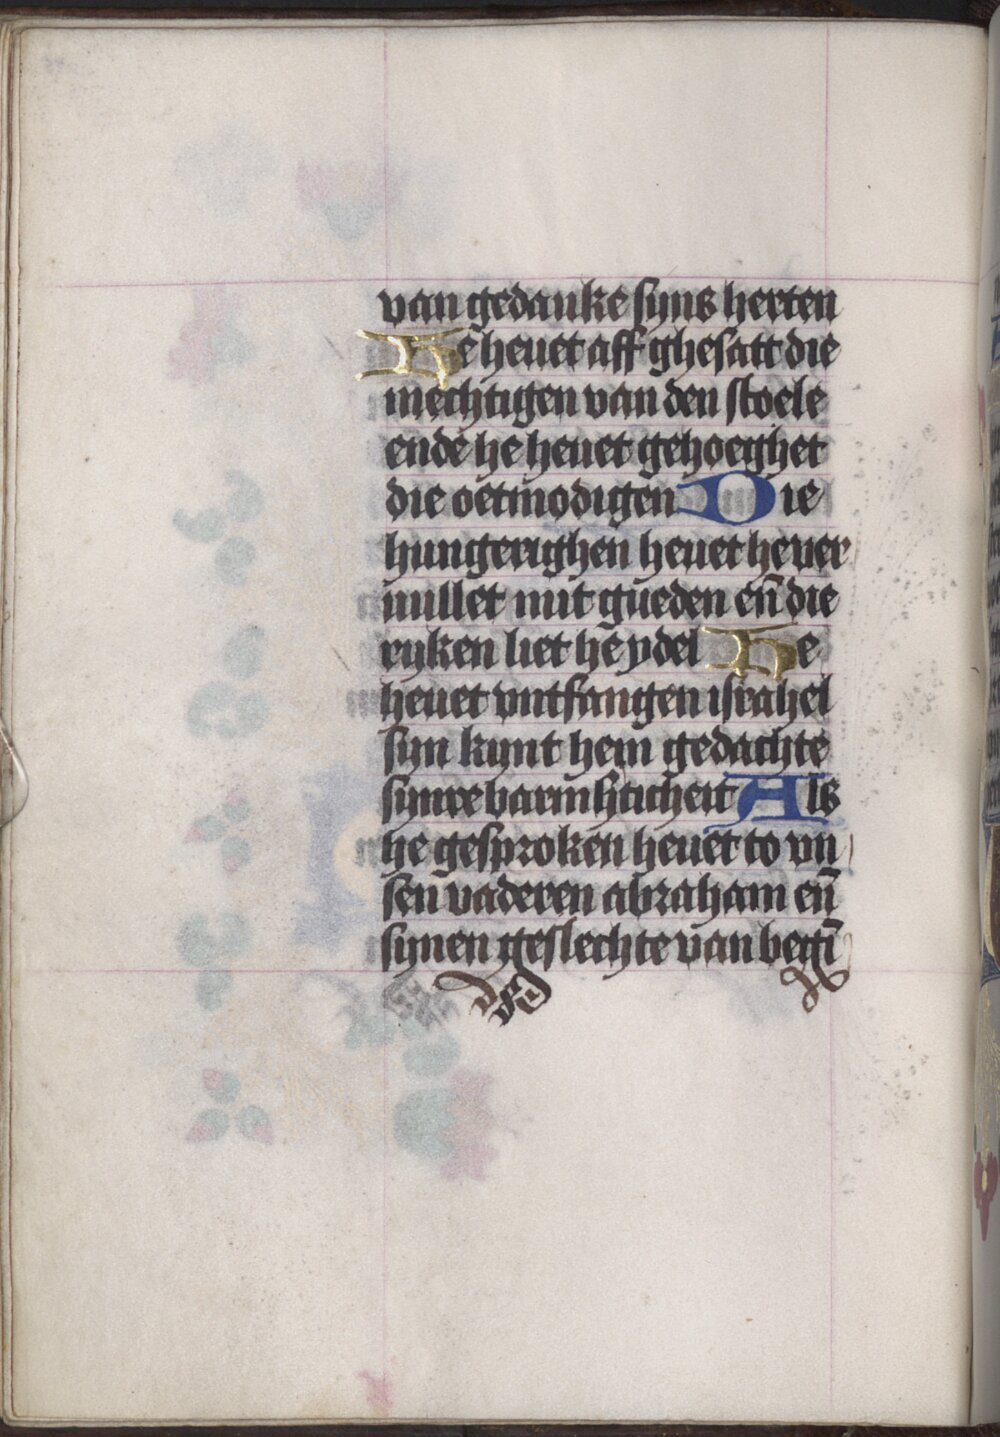 van gedanke syns herten
He heuet aff ghesatt die
mechtigen van den stoele
ende he heuet gehoeghet
die oetmodigen Die
hungerighen heuet he ver
uullet mit gueden en̄ die
ryken liet he ydel He
heuet vntfangen israhel
syn kynt hem gedachte
synre barmhticheit Als
he gesproken heuet to vn
sen vaderen abraham en̄
synen geslechte van begī